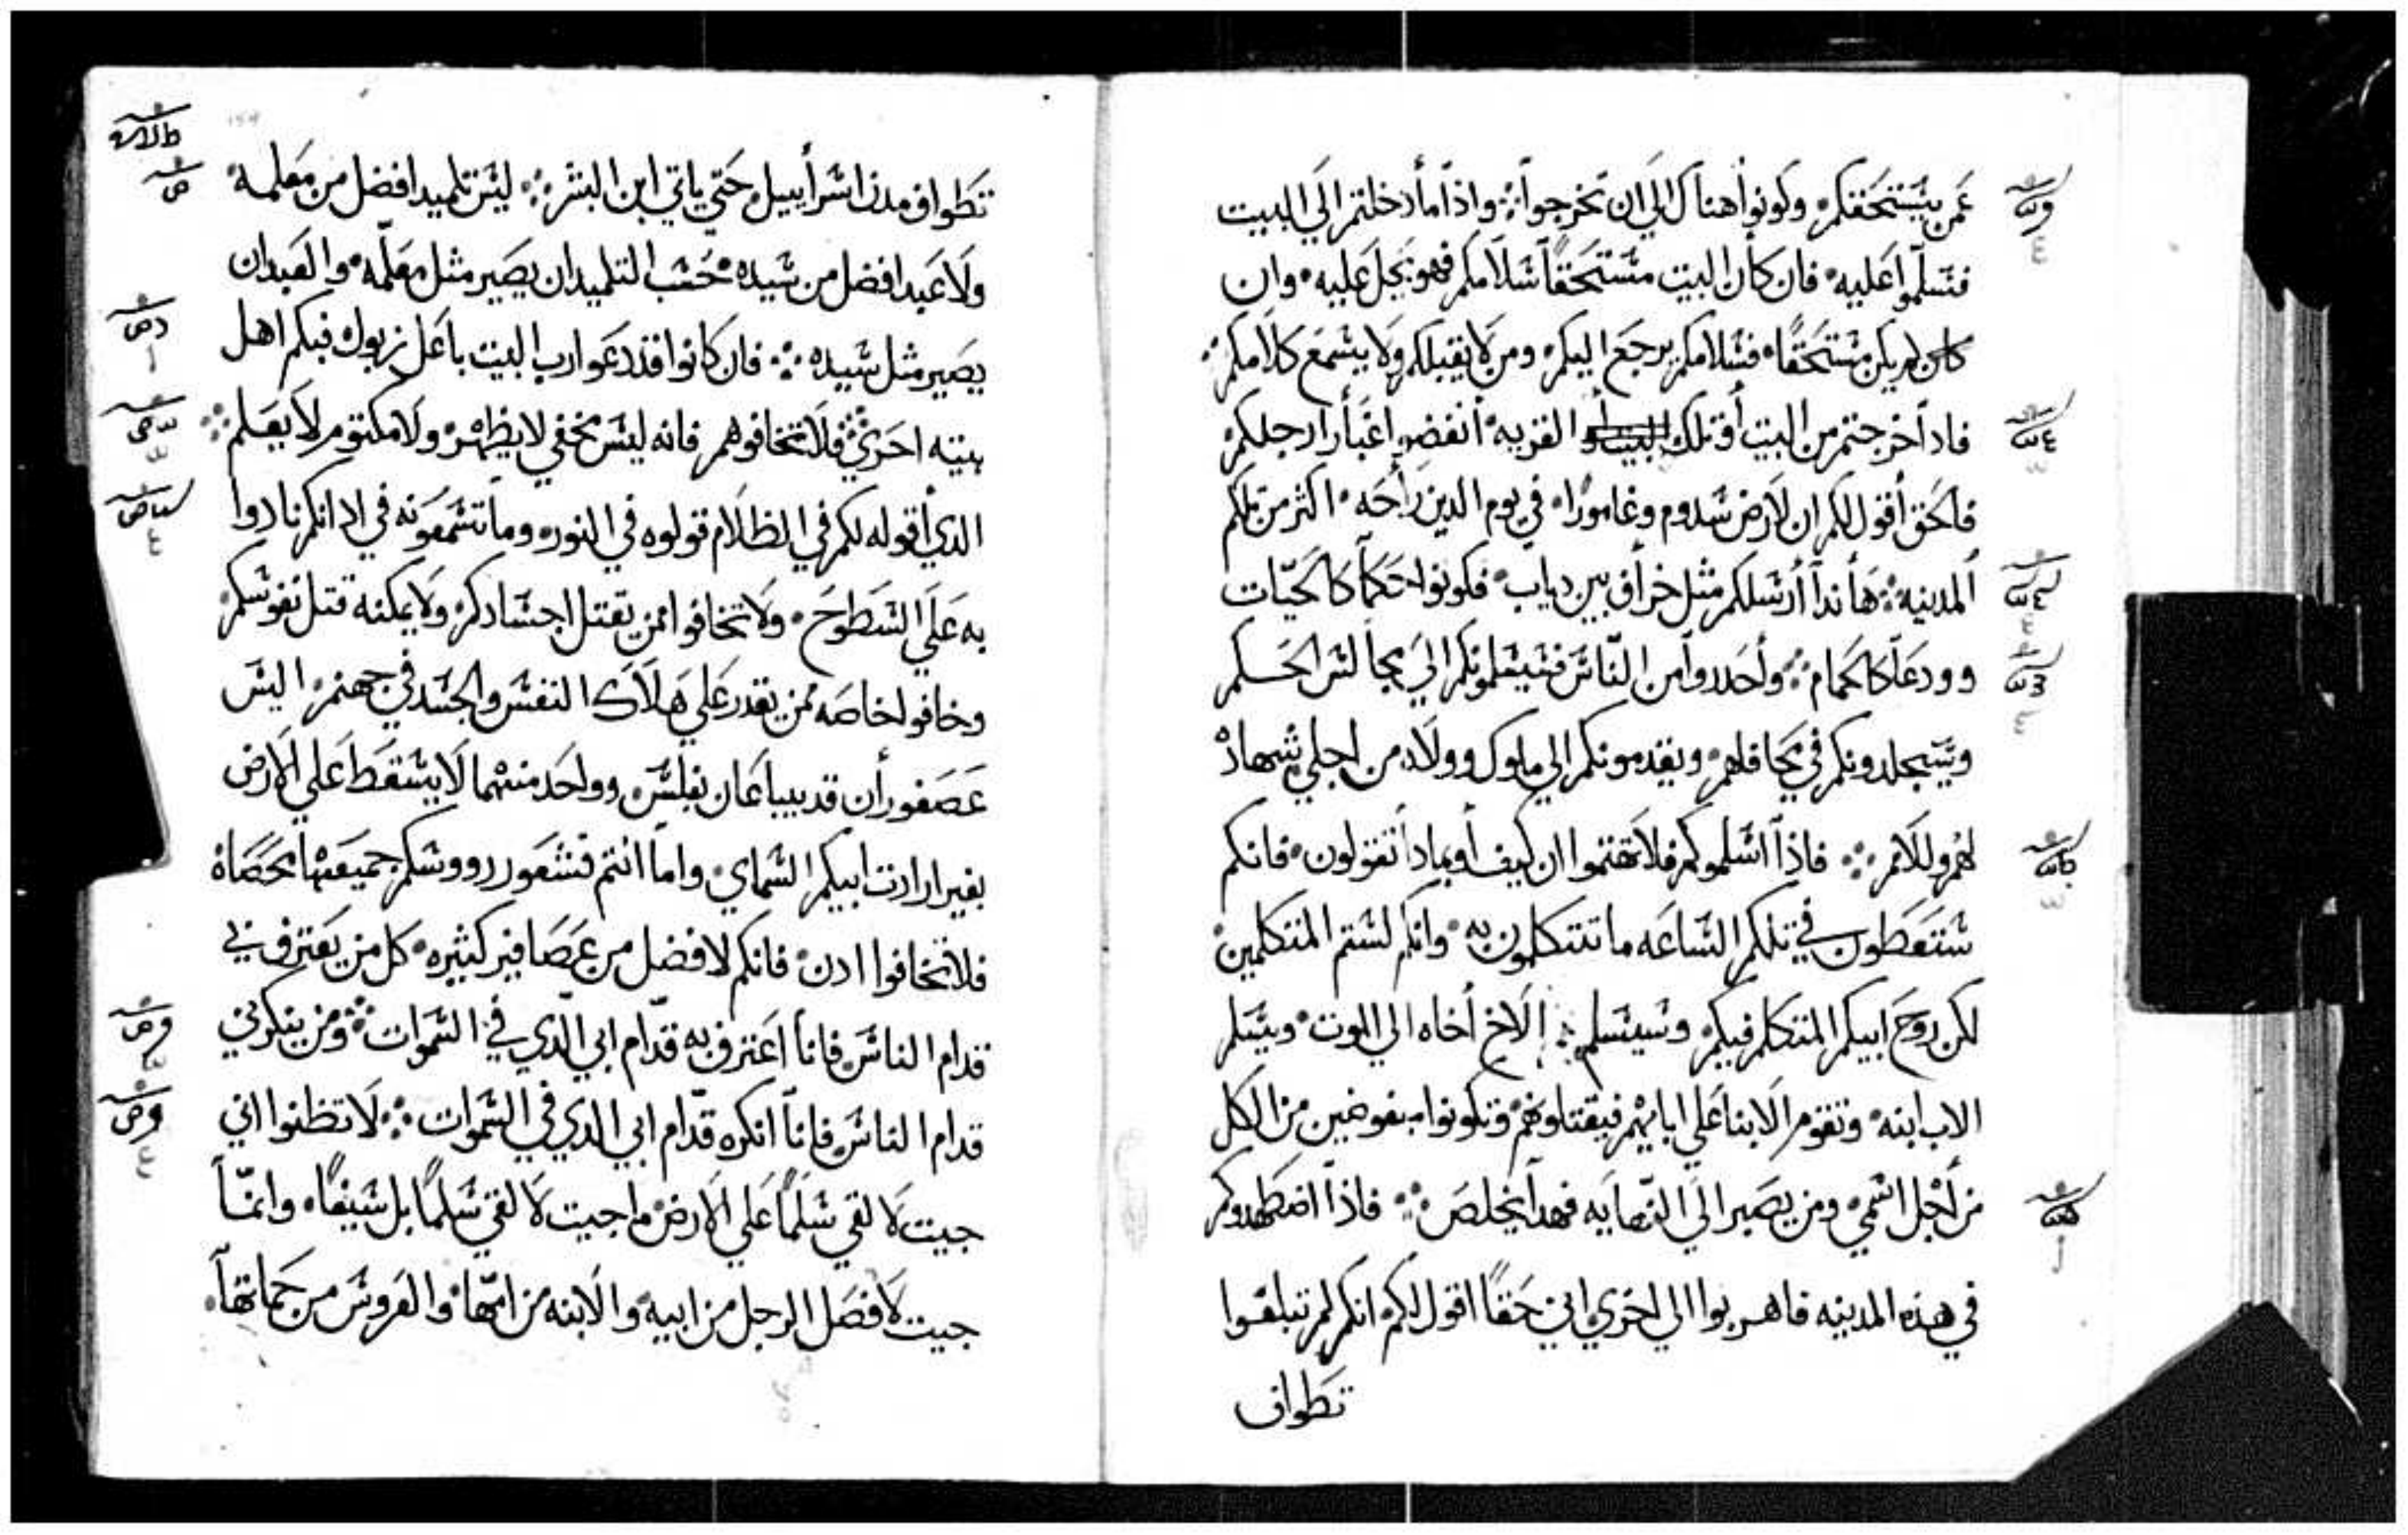 عمن يستحقكم وكونوا هناك الي ان تخرجوا واذا ما دخلتم الي البيت
فسلموا عليه فان كان البيت مستحقا سلامكم فهو يحل عليه وان
كان لم يكن مستحقا فسلامكم يرجع اليكم ومن لا يقبلكم ولا يسمع كلامكم
فاذا خرجتم من البيت أو تلك القريه أنفضوا غبار ارجلكم
فالحق أقول لكم ان لارض سدوم وغامورا في يوم الدين راحه اكثر من تلكم
المدينه هأندا أرسلكم مثل خراف بين دياب فكونوا حكما كالحيات
وودعا كالحمام وأحدروا من الناس فسيسلمونكم الي مجالس الحكم
وسيجلدونكم في محافلهم ويقدمونكم الي ملوك وولاه من اجلي شهادة
لهم وللامم فاذا اسلموكم فلا تهتموا ان كيف أو بمادا تقولون فانكم
ستعطون في تلكم الساعه ما تتكلمون به وانكم لستم المتكلمين
لكن روح ابيكم المتكلم فيكم وسيسلم الاخ أخاه الي الموت ويسلم
الاب ابنه وتقوم الابنا علي ابايهم فيقتلونهم وتكونوا مبغوضين من الكل
من أجل اسمي ومن يصير الي النهايه فهدا يخلص فاذا اضطهدوكم
في هذه المدينه فاهربوا الي اخري اني حقا اقول لكم انكم لم تبلغوا
تطواف
تطواف مدن اسراييل حتي ياتي ابن البشر ليس تلميد افضل من معلمه
ولا عبد افضل من سيده حسب التلميد ان يصير مثل معلمه والعبد ان
يصير مثل سيده فان كانوا قد دعوا رب البيت باعل زبوك فبكم اهل
بيته احري فلا تخافوهم فانه ليس مخفي لا يظهر ولا مكتوم لا يعلم
الذي أقوله لكم في الظلام قولوه في النور وما تسمعونه في ادانكم نادوا
به علي السطوح ولا تخافوا ممن يقتل اجسادكم ولا يمكنه قتل نفوسكم
وخافوا خاصه ممن يقدر علي هلاك النفس والجسد في جهنم اليس
عصفوران قد يباعان بفلس وواحد منهما لا يسقط علي الارض
بغير ارادت ابيكم السماي واما انتم فشعور رووسكم جميعها محصاة
فلا تخافوا ادن فانكم لافضل من عصافير كثيره كل من يعترف بي
قدام الناس فانا اعترف به قدام ابي الذي في السموات ومن ينكرني
قدام الناس فانا انكره قدام ابي الدي في السموات لا تظنوا اني
جيت لالقي سلما علي الارض ما جيت لالقي سلما بل سيفا وانما
جيت لافصل الرجل من ابيه والابنه من امها والعروس من حماتها